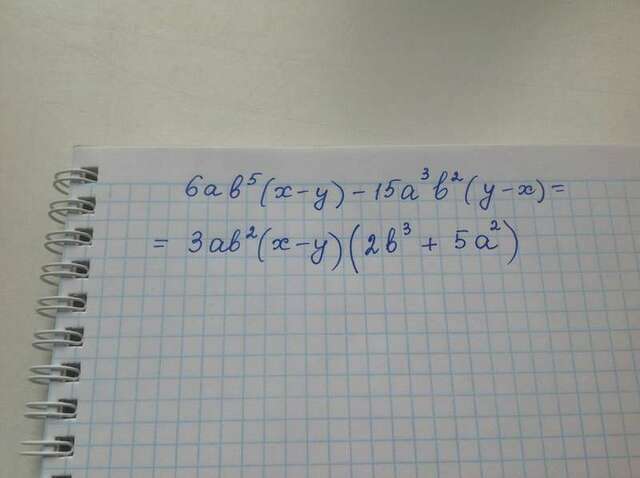 6ab⁵(x-y)-15a³b²(y-x)=
= 3ab²(x-y)(2b³ + 5a²)